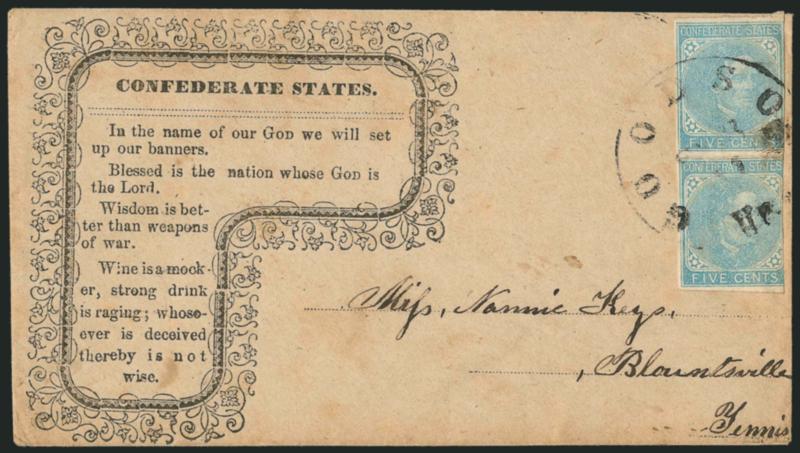 CONFEDERATE STATES.
In the name of our GOD we will set
up our banners.
Blessed is the nation whose GOD is
the Lord.
Wisdom is bet-
ter than weapons
of war.
Wine is a mock-
er, strong drink
is raging; whoso-
ever is deceived
thereby is not
wise.
CONFEDERATE STATES
FIVE CENTS
CONFEDERATE STATES
FIVE CENTS
GOODLSO
Miss, Nannie Keys,
Blountsville
Tennis